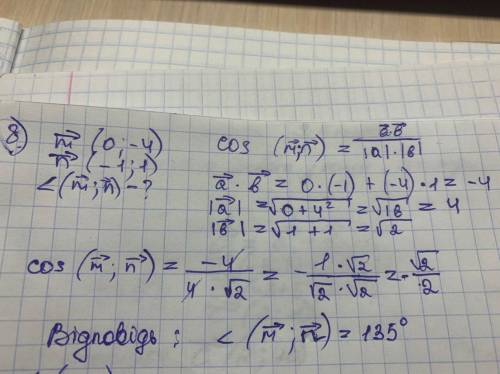 8) m⃗ (0; -4)
n⃗ (-1; 1)
∠(m⃗; n⃗) - ?
cos (m⃗; n⃗) = a⃗·b⃗ / |a|·|b|
a⃗ · b⃗ = 0·(-1) + (-4)·1 = -4
|a⃗| = √(0+4²) = √16 = 4
|b⃗| = √(1+1) = √2
cos (m⃗; n⃗) = -4 / (4·√2) = - (1·√2) / (√2·√2) = - √2 / 2
Відповідь: ∠(m⃗; n⃗) = 135°